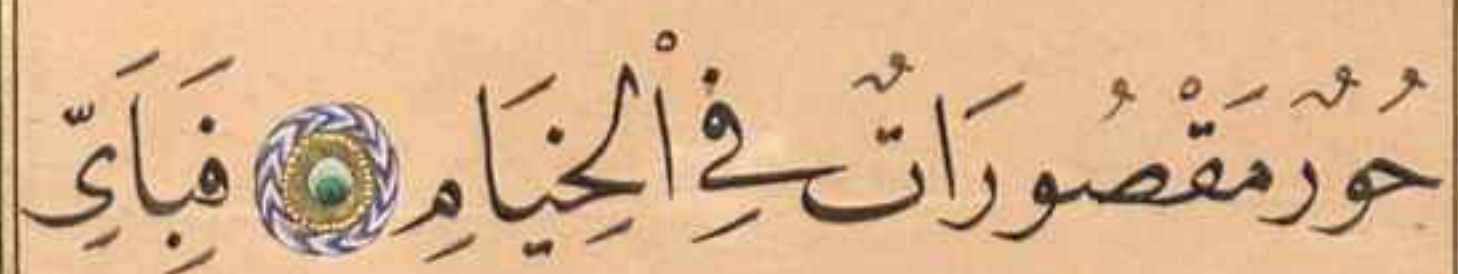 حُورٌ مَقْصُورَاتٌ فِي الْخِيَامِ فَبِاَيِّ